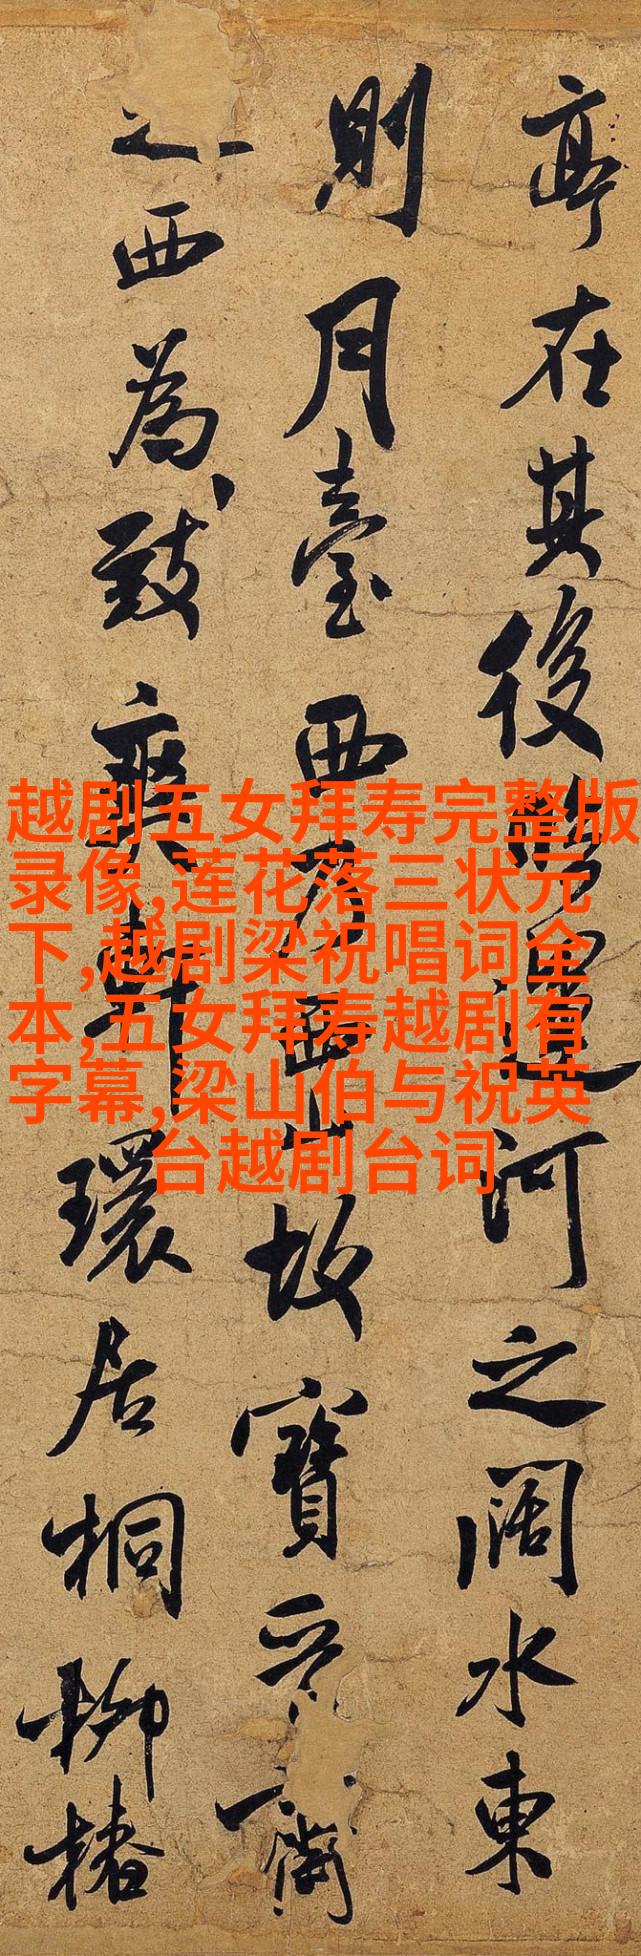 亭在其後臨運河之闊水東
則月臺西乃西山故寶晉齋
之西為致爽軒環居桐柳椿
越剧五女拜寿完整版
录像,莲花落三状元
下,越剧梁祝唱词全
本,五女拜寿越剧有
字幕,梁山伯与祝英
台越剧台词